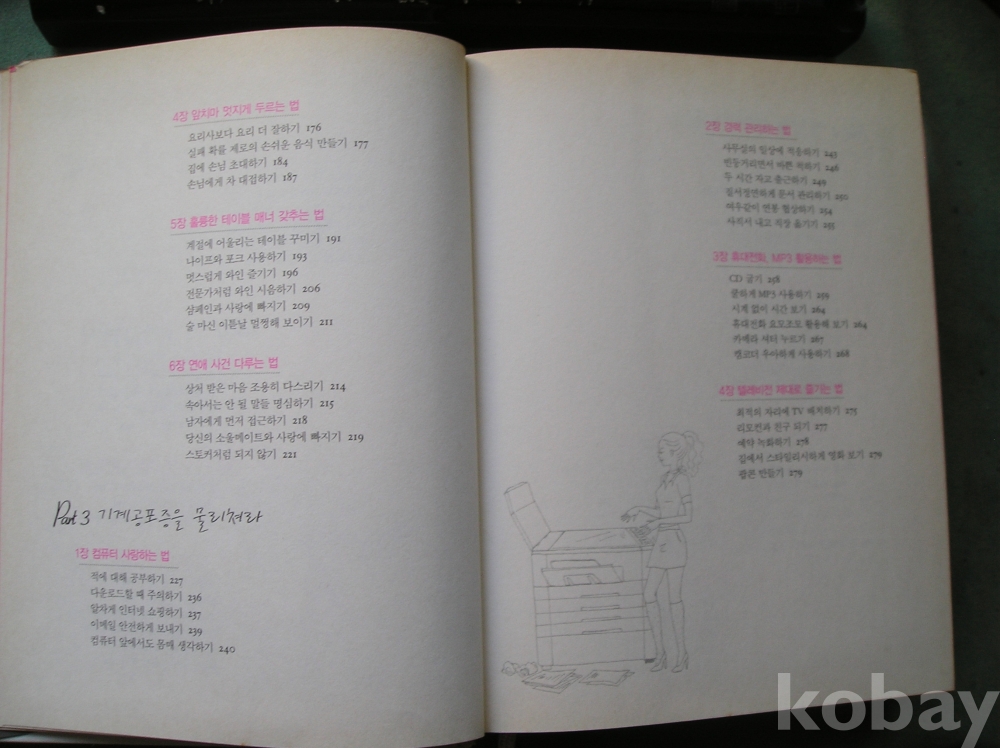 4장 앞치마 멋지게 두르는 법
요리사보다 요리 더 잘하기 176
실패 확률 제로의 손쉬운 음식 만들기 177
집에 손님 초대하기 184
손님에게 차 대접하기 187
5장 훌륭한 테이블 매너 갖추는 법
계절에 어울리는 테이블 꾸미기 191
나이프와 포크 사용하기 193
멋스럽게 와인 즐기기 196
전문가처럼 와인 시음하기 206
샴페인과 사랑에 빠지기 209
술 마신 이튿날 멀쩡해 보이기 211
6장 연애 사건 다루는 법
상처 받은 마음 조용히 다스리기 214
속아서는 안 될 말들 명심하기 215
남자에게 먼저 접근하기 218
당신의 소울메이트와 사랑에 빠지기 219
스토커처럼 되지 않기 221
Part 3 기계공포증을 물리쳐라
1장 컴퓨터 사랑하는 법
적에 대해 공부하기 227
다운로드할 때 주의하기 236
알차게 인터넷 쇼핑하기 237
이메일 안전하게 보내기 239
컴퓨터 앞에서도 몸매 생각하기 240
2장 경력 관리하는 법
사무실의 일상에 적응하기 243
빈둥거리면서 바쁜 척하기 246
두 시간 자고 출근하기 249
질서정연하게 문서 관리하기 250
여우같이 연봉 협상하기 254
사직서 내고 직장 옮기기 255
3장 휴대전화, MP3 활용하는 법
CD 굽기 258
쿨하게 MP3 사용하기 259
시계 없이 시간 보기 264
휴대전화 요모조모 활용해 보기 264
카메라 셔터 누르기 267
캠코더 우아하게 사용하기 268
4장 텔레비전 제대로 즐기는 법
최적의 자리에 TV 배치하기 275
리모컨과 친구 되기 277
예약 녹화하기 278
집에서 스타일리시하게 영화 보기 279
팝콘 만들기 279
kobay